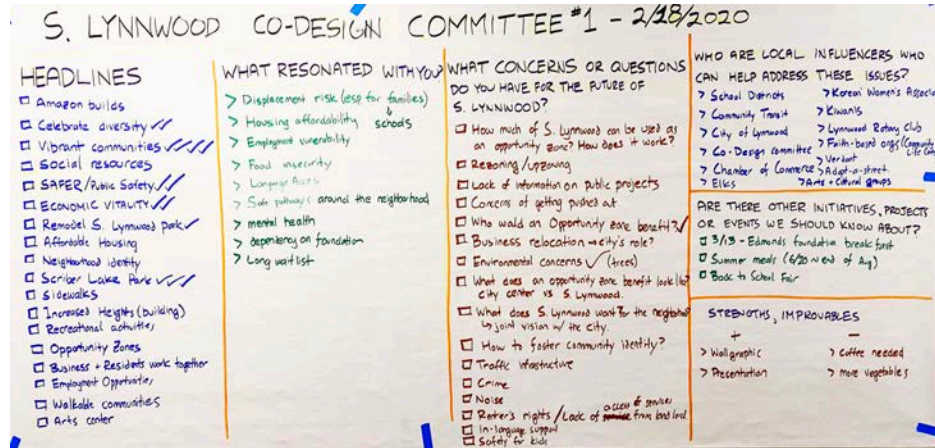 S. LYNNWOOD CO-DESIGN COMMITTEE #1 - 2/18/2020
HEADLINES
Amazon builds
Celebrate diversity ✓✓
Vibrant communities ✓✓✓✓
Social resources
SAFER/Public Safety ✓✓
ECONOMIC VITALITY ✓✓
Remodel S. Lynnwood Park ✓
Affordable Housing
Neighborhood identity
Scriber Lake Park ✓✓✓
Sidewalks
Increased Heights (building)
Recreational activities
Opportunity Zones
Business + Residents work together
Employment Opportunities
Walkable communities
Arts center
WHAT RESONATED WITH YOU?
> Displacement risk (esp for families)
schools
> Housing affordability
> Employment vunerability
> Food insecurity
> Language Access
> Safe pathways around the neighborhood
> mental health
> dependency on foundation
> Long waitlist
WHAT CONCERNS OR QUESTIONS
DO YOU HAVE FOR THE FUTURE OF
S. LYNNWOOD?
How much of S. Lynnwood can be used as
an opportunity zone? How does it work?
Rezoning/upzoning
Lack of information on public projects
Concerns of getting pushed out
Who would an Opportunity zone benefit? ✓
Business relocation → city's role?
Environmental concerns ✓ (trees)
What does an opportunity zone benefit look like?
city center vs S. Lynnwood.
What does S. Lynnwood want for the neighborhood
↳ joint vision w/ the city.
How to foster community identity?
Traffic infrastructure
Crime
Noise
Renter's rights / Lack of access to services from land lord
In-language support
Safety for kids
WHO ARE LOCAL INFLUENCERS WHO
CAN HELP ADDRESS THESE ISSUES?
> School Districts
> Community Transit
> City of Lynnwood
> Co-Design committee
> Chamber of Commerce
> Elks
> Korean Women's Associa
> Kiwanis
> Lynnwood Rotary Club
> Faith-based orgs (Community
Life
> Verdant
> Adopt-a-street
> Arts + Cultural groups
ARE THERE OTHER INITIATIVES, PROJECTS
OR EVENTS WE SHOULD KNOW ABOUT?
3/13 - Edmonds foundation breakfast
Summer meals (6/20 → end of Aug)
Back to School Fair
STRENGTHS, IMPROVABLES
+
> Wallgraphic
> Presentation
-
> Coffee needed
> more vegetables